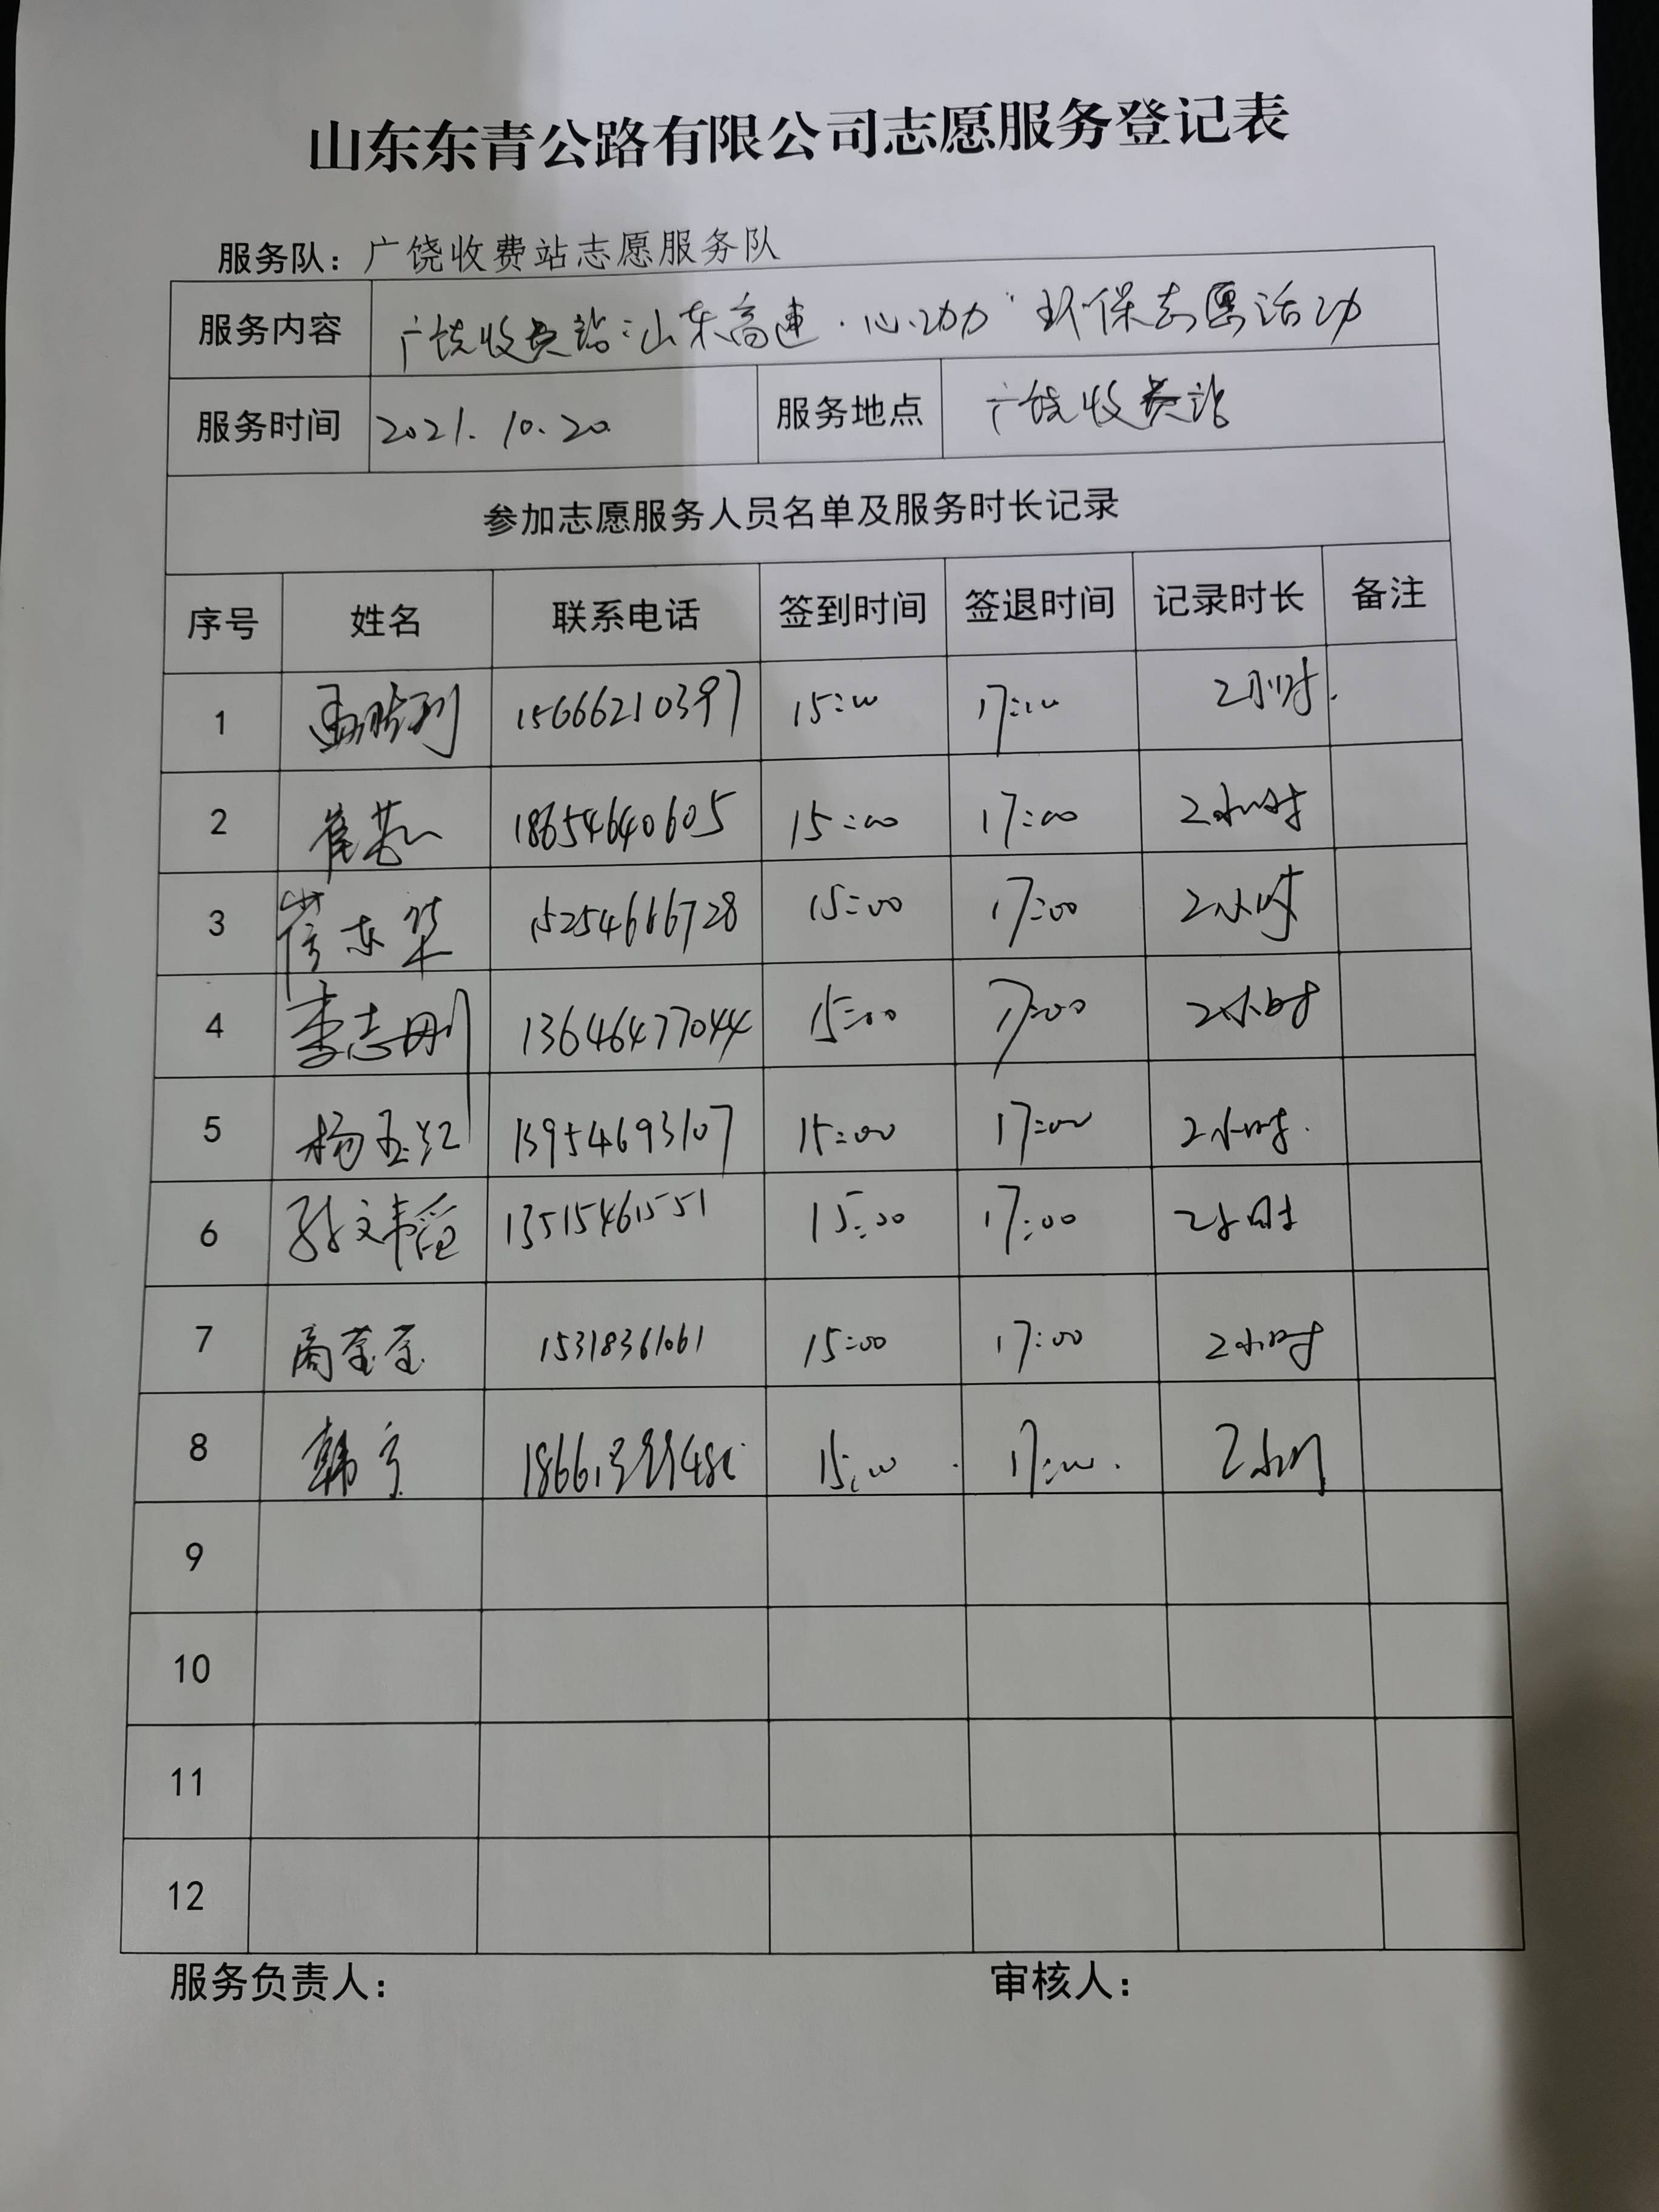 山东东青公路有限公司志愿服务登记表
服务队：广饶收费站志愿服务队
服务内容 广饶收费站"山东高速·心功力"环保志愿活动
服务时间 2021.10.20 服务地点 广饶收费站
参加志愿服务人员名单及服务时长记录
序号 姓名 联系电话 签到时间 签退时间 记录时长 备注
1 15666210397 15:00 17:00 2小时.
2 崔 18654640605 15:00 17:00 2小时
3 15254666728 15:00 17:00 2小时
4 李志刚 13646477044 15:00 17:00 2小时
5 杨玉红 13954693107 15:00 17:00 2小时.
6 13515461551 15:00 17:00 2小时
7 商莹莹 15318361061 15:00 17:00 2小时
8 韩 15:00 17:00. 2小时
9
10
11
12
服务负责人： 审核人：